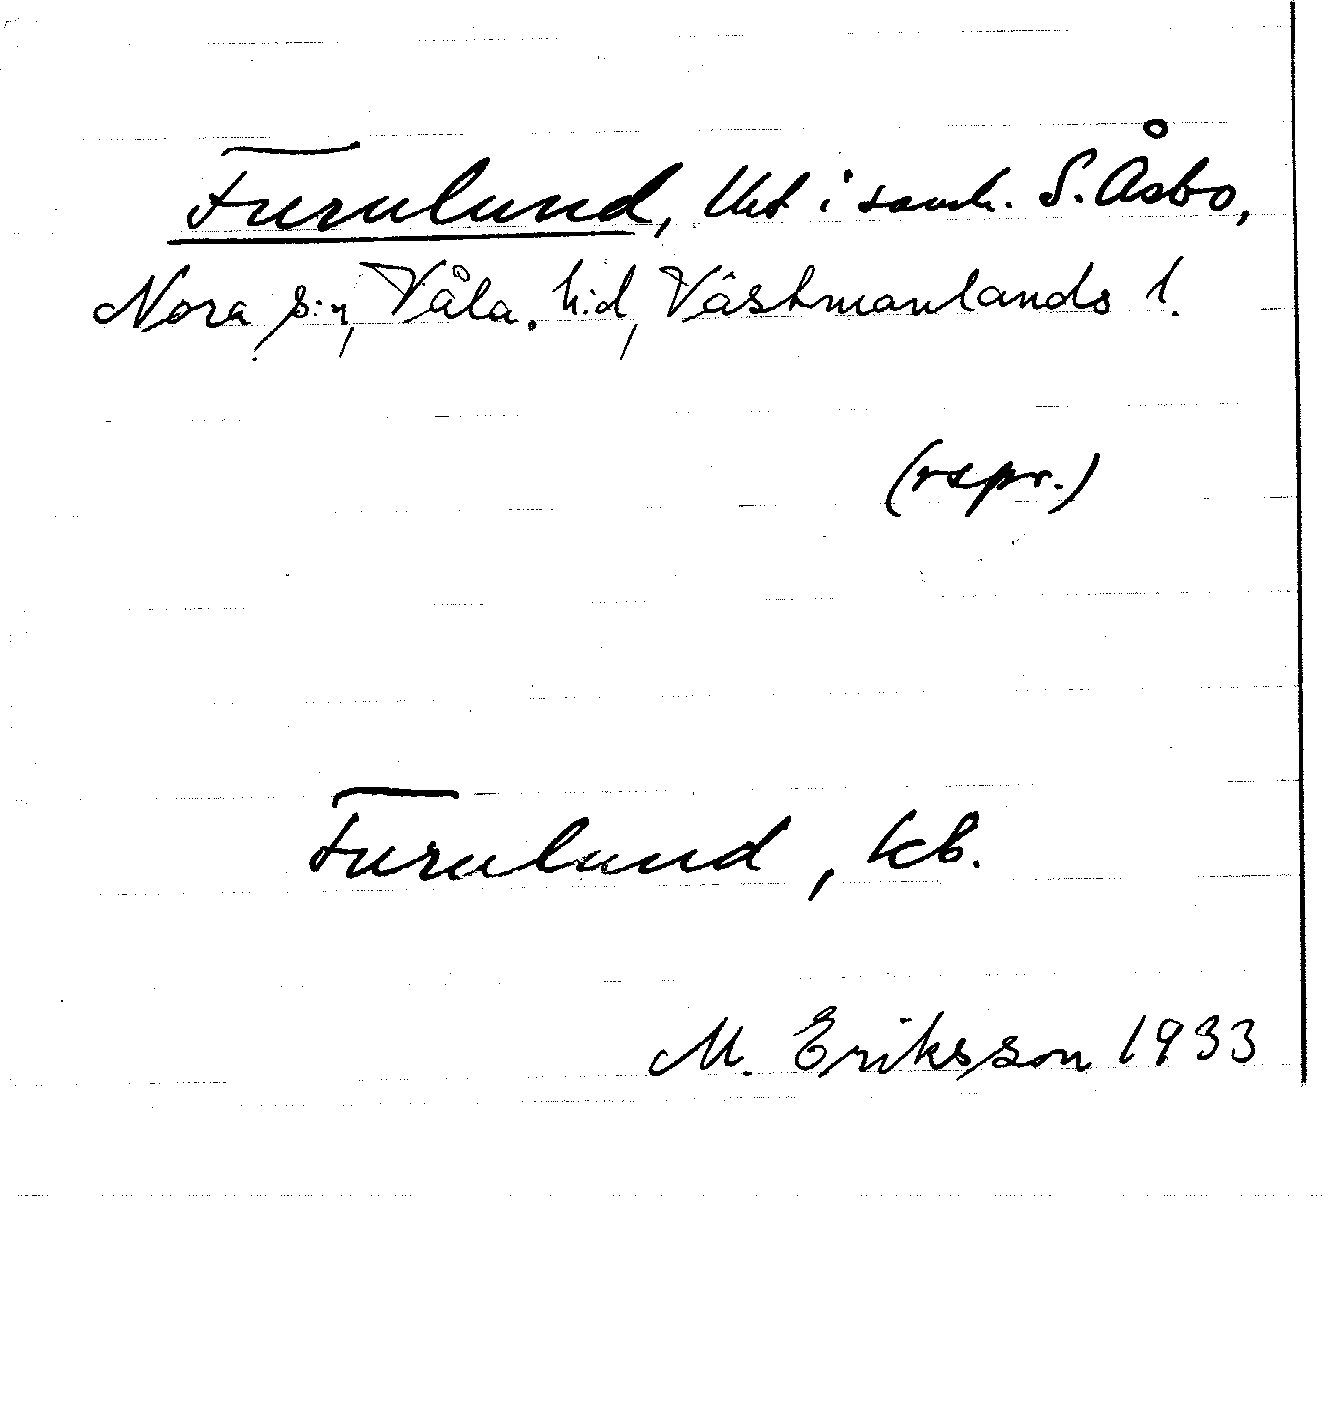 Furulund, lht i samh. S. Åsbo,
Nora s:n, Våla h:d, Västmanlands l.
(rspr.)
Furulund, kb.
M. Eriksson 1933